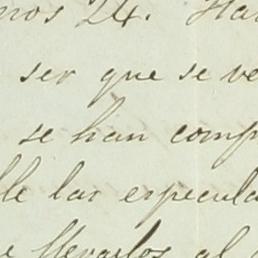 nos 24. Ha
ser que se ve
se han comp
lle las especula
e llevarlos al